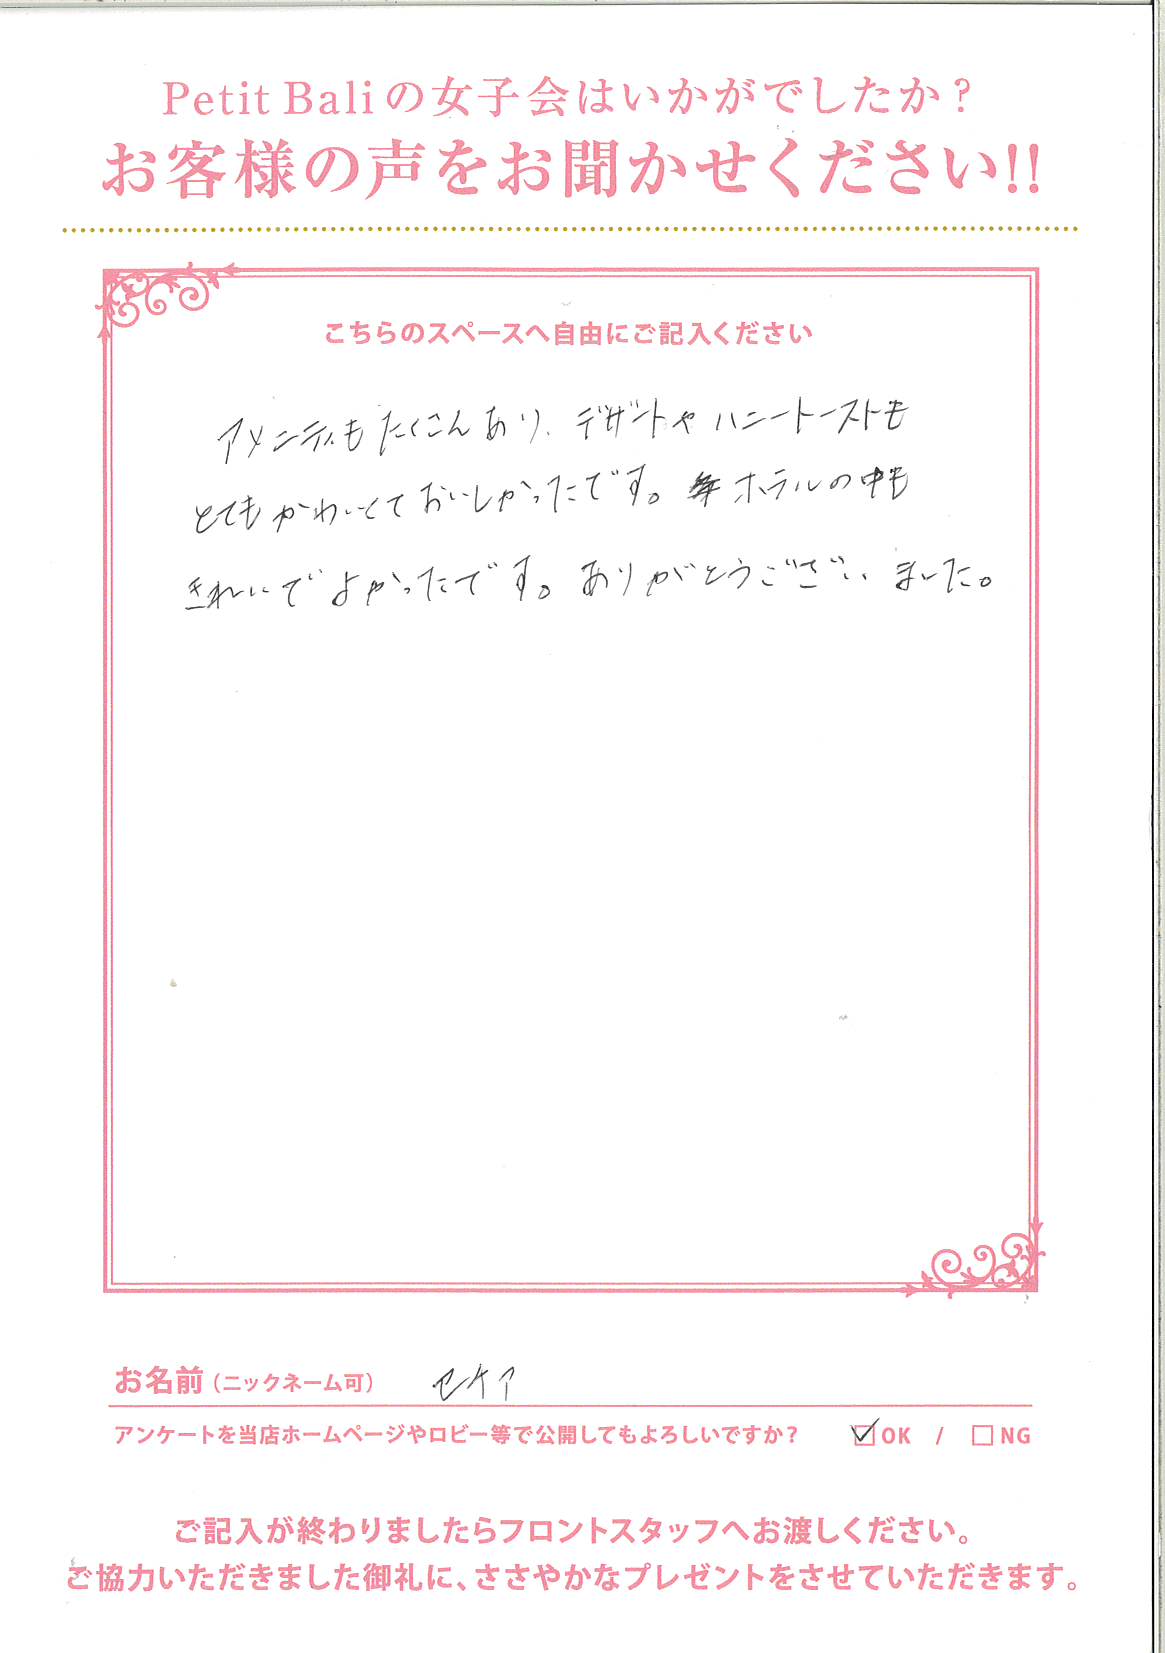 Petit Baliの女子会はいかがでしたか?
お客様の声をお聞かせください!!
こちらのスペースへ自由にご記入ください
アメニティもたくさんあり、デザートやハニートーストも
とてもかわいくておいしかったです。ホテルの中も
きれいでよかったです。ありがとうございました。
お名前(ニックネーム可) セケア
アンケートを当店ホームページやロビー等で公開してもよろしいですか? OK / NG
ご記入が終わりましたらフロントスタッフへお渡しください。
ご協力いただきました御礼に、ささやかなプレゼントをさせていただきます。